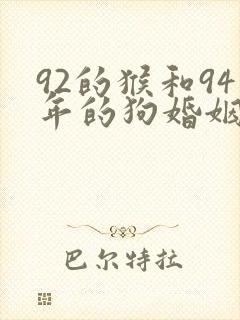 92的猴和94
年的狗婚姻
巴尔特拉